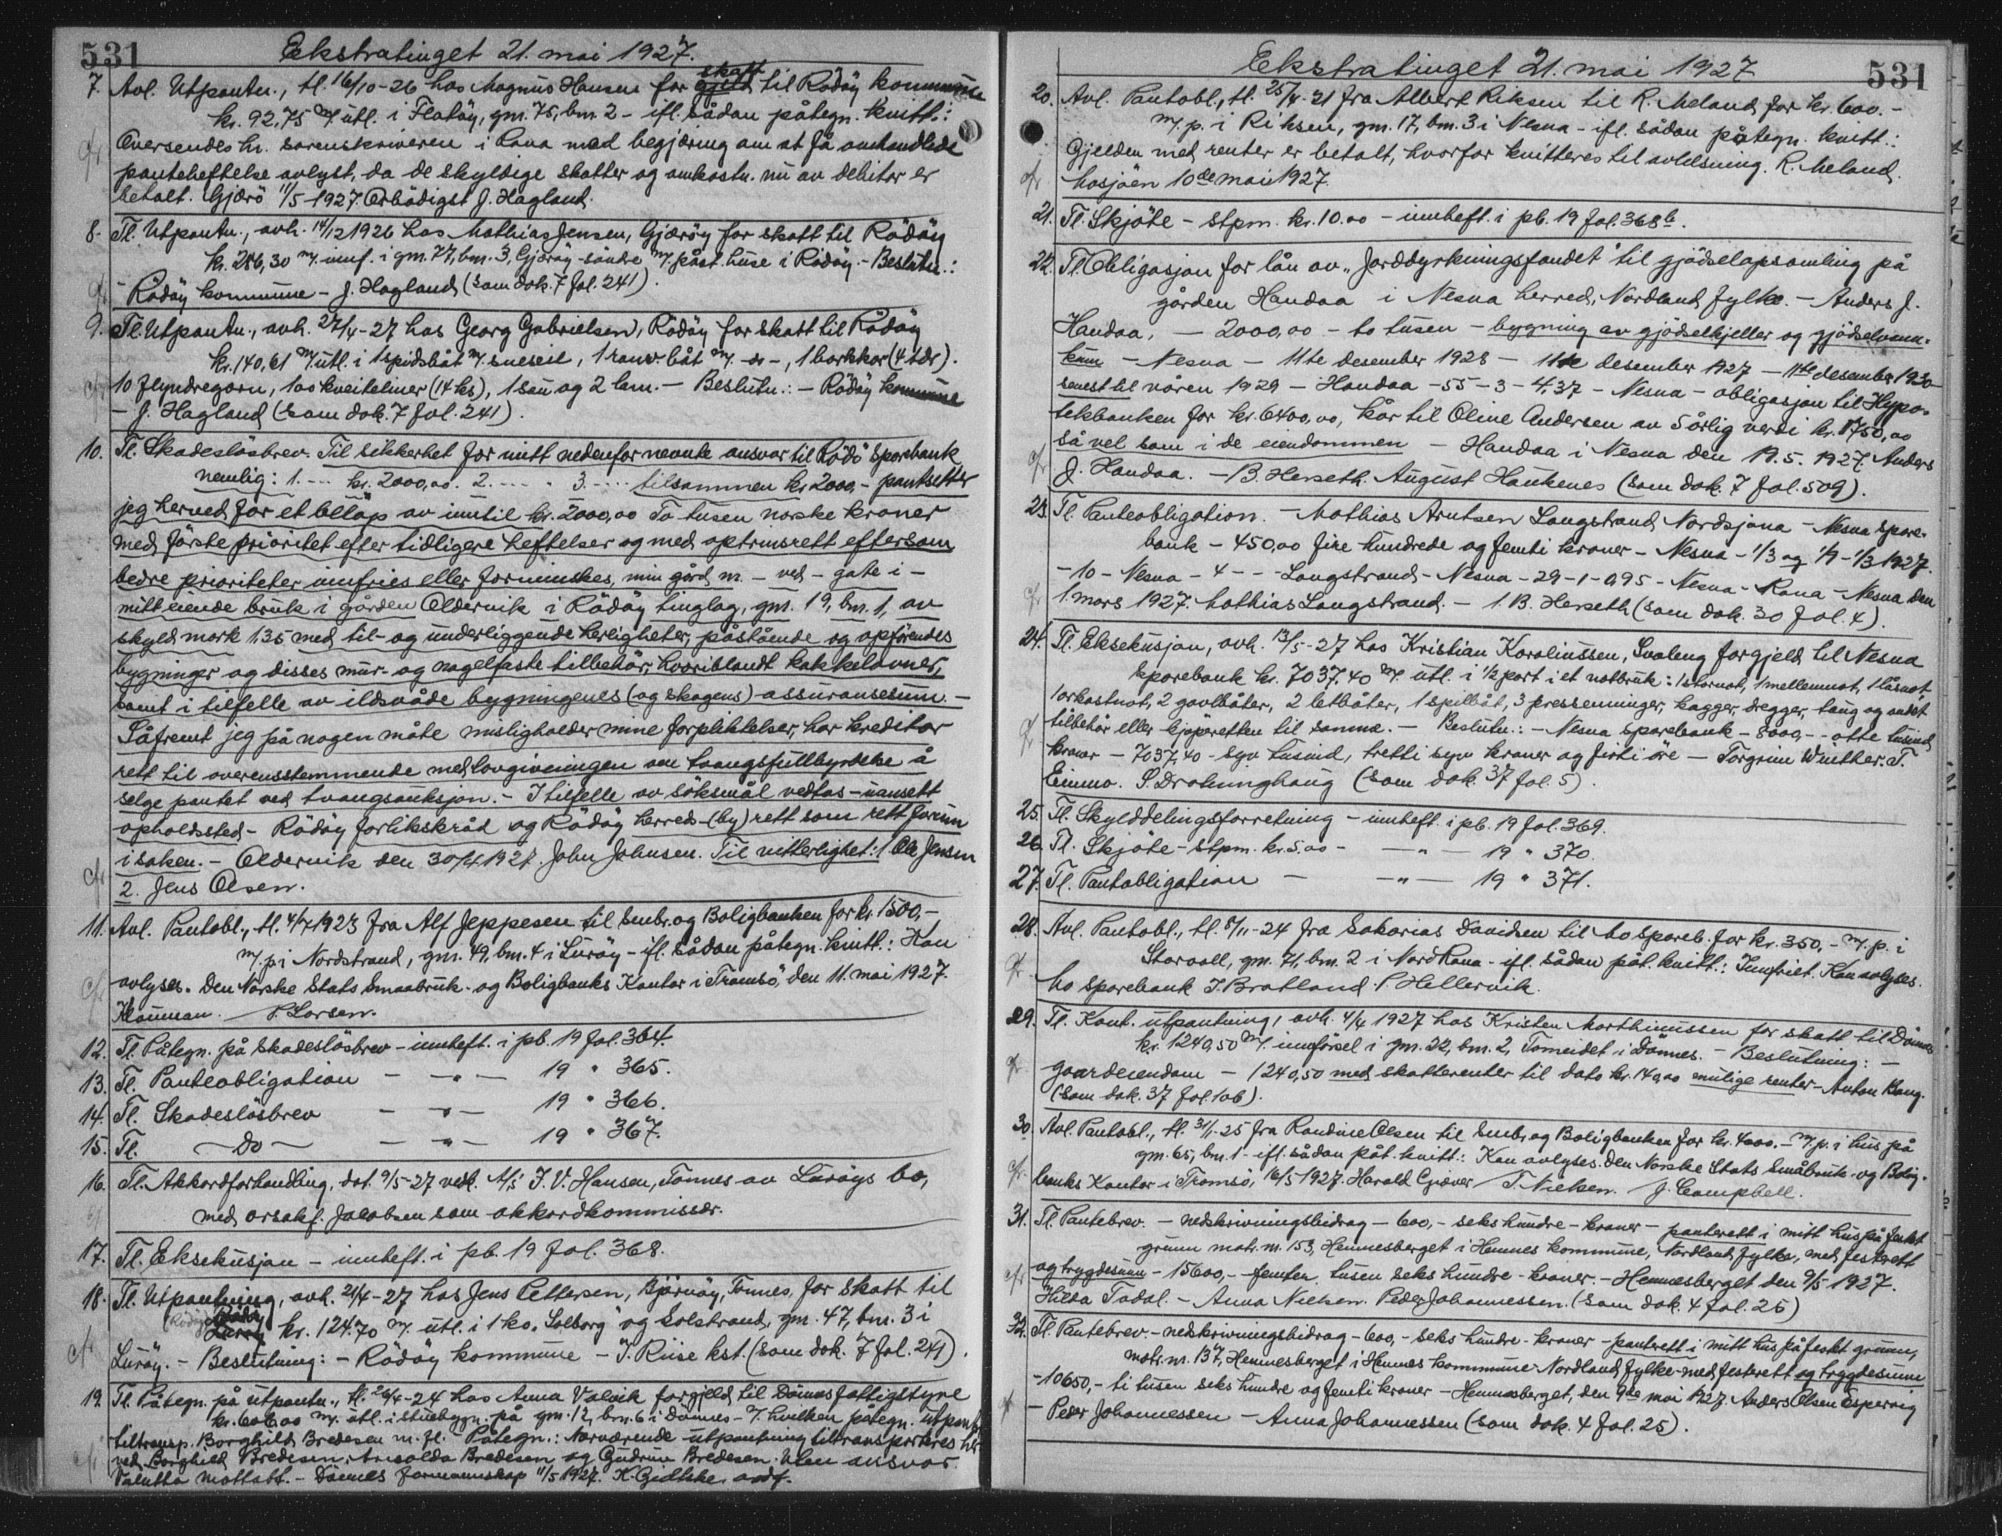 531
Ekstratinget 21. mai 1927.
7. Avl. Utpantn., tl. 16/10-26 hos Magnus Hansen for gjeld skatt til Rödöy kommune
kr. 92,75 m/ utl. i Flatöy, gm. 75, bm. 2 - ifl. sådan påtegn. kvitt.:
Oversendes hr. sorenskriveren i Rana med begjæring om at få omhandlede
panteheftelse avlyst, da de skyldige skatter og omkostn. nu av debitor er
betalt. Gjærö 11/5-1927. Ærbödigst J. Hagland.
8. Tl. Utpantn., avh. 14/12 1926 hos Mathias Jensen, Gjæröy for skatt til Rödöy
kr. 286,30 m/ innf. i gm. 77, bm. 3, Gjæröy-söndre m/ påst. huse i Rödöy. - Beslutn.:
- Rödöy kommune - J. Hagland (som dok. 7 fol. 241).
9. Tl. Utpantn., avh. 27/4-27 hos Georg Gabrielsen, Rödöy for skatt til Rödöy
kr. 140,61 m/ utl. i 1 spidsbåt m/ sneseil, 1 ranabåt m/ -do-, 1 barkkar (4 tdr).
10 flyndregarn, 100 kveiteliner (14 kg), 1 sau og 2 lam. - Beslutn.: - Rödöy kommune
- J. Hagland (som dok. 7 fol. 241).
10. Tl. Skadeslösbrev. Til sikkerhet for mitt nedenfor nevnte ansvar til Rödö Sparebank
nemlig: 1. --- kr. 2000,00. 2. --- " 3. --- tilsammen kr. 2000,- pantsetter
jeg herved for et belöp av inntil kr. 2000,00 To tusen norske kroner
med förste prioritet efter tidligere heftelser og med optrinsrett eftersom
bedre prioriteter innfries eller forminskes, min gård nr. - ved - gate i -
mitt eiende bruk i gården Oldervik i Rödöy tinglag, gm. 19, bm. 1, av
skyld mark 1.35 med til- og underliggende herligheter, påstående og opförendes
bygninger og disses mur- og nagelfaste tilbehör, hvoriblandt kakkelovner,
samt i tilfelle av ildsvåde bygningenes (og skogens) assuransesum. -
Såfremt jeg på nogen måte misligholder mine forpliktelser, har kreditor
rett til overensstemmende med lovgivningen om tvangsfullbyrdelse å
selge pantet ved tvangsauksjon. - I tilfelle av söksmål vedtas - uansett
opholdssted - Rödöy forliksråd og Rödöy herreds- (by)rett som rett forum
i saken. - Oldervik den 30/4 1927. John Johnsen. Til vitterlighet: 1. Ole Jensen
2. Jens Olsen.
11. Avl. Pantobl., tl. 4/7 1923 fra Alf Jeppesen til Småbr. og Boligbanken for kr. 1500,-
m/ p. i Nordstrand, gm. 49, bm. 4 i Luröy - ifl. sådan påtegn. kvitt.: Kan
avlyses. Den Norske Stats Smaabruk- og Boligbanks Kontor i Tromsö, den 11. mai 1927.
Klouman. P. Larsen.
12. Tl. Påtegn. på Skadeslösbrev - innheft. i pb. 19 fol. 364.
13. Tl. Panteobligation - - " - 19 " 365.
14. Tl. Skadeslösbrev - - " - 19 " 366.
15. Tl. - Do - - - " - 19 " 367.
16. Tl. Akkordforhandling, dat. 9/5-27 vedk. A/S J. V. Hansen, Tonnes av Luröys bo,
med orsakf. Jacobsen som akkordkommissær.
17. Tl. Eksekusjon - innheft. i pb. 19 fol. 368.
18. Tl. Utpantning, avh. 21/4-27 hos Jens Pettersen, Bjärnöy, Tonnes, for skatt til
(Rödöy) Rödöy Luröy kr. 124,70 m/ utl. i 1 ko, Solborg og Solstrand, gm. 47, bm. 3 i
Luröy. - Beslutning: - Rödöy kommune - J. Riise kst. (som dok. 7 fol. 241).
19. Tl. Påtegn. på utpantn., tl. 26/4-24 hos Anna Valvik for gjeld til Dönnes fattigstyre
kr. 606,00 m/ utl. i stuebygn. på gm. 12, bm. 6 i Dönnes - m/ hvilken påtegn. utpantn.
tiltransp. Borghild Bredesen m. fl. Påtegn.: Nærværende utpantning tiltransporteres her-
ved Borghild Bredesen, Bredesen og Gudrun Bredesen. Uten ansvar.
Valutta mottatt. - Dönnes formannskap 11/5 1927. K. ordf.
531
Ekstratinget 21. mai 1927
20. Avl. Pantobl., tl. 25/4-21 fra Albert Riksen til R. Meland for kr. 600.-
m/ p. i Riksen, gm. 17, bm. 3 i Nesna - ifl. sådan påtegn. kvitt.:
Gjelden med renter er betalt, hvorfor kvitteres til avlesning. R. Meland.
Mosjöen 10de mai 1927.
21. Tl. Skjöte - stpm. kr. 10.00 - innheft. i pb. 19 fol. 368b.
22. Tl. Obligasjon for lån av "Jorddyrkningsfondet" til gjödselopsamling på
gården Handaa i Nesna herred, Nordland fylke. - Anders J.
Handaa, - 2000,00 - to tusen - bygning av gjödselkjeller og gjödselvann-
kum - Nesna - 11te desember 1928 - 11te desember 1927 - 11te desember 1930 -
senest til våren 1929 - Handaa - 55 - 3 - 4,37 - Nesna - obligasjon til Hypo-
tekbanken for kr. 6400,00, kår til Oline Andersen av 5 årlig verdi kr. 1750,00
så vel som i de eiendommen - Handaa i Nesna den 19.5.1927. Anders
J. Handaa. - B. Herseth. August Haukenes (som dok. 7 fol. 509).
23. Tl. Panteobligation. - Mathias Arntsen Langstrand, Nordsjona - Nesna Spare-
bank - 450,00 fire hundrede og femti kroner - Nesna - 1/3 og 1/9 - 1/3 1927.
- 10 - Nesna - 4 - - - Langstrand - Nesna - 29 - 1 - 0,95 - Nesna - Rana - Nesna den
1. mars 1927. Mathias Langstrand. - 1. B. Herseth (som dok. 30 fol. 4).
24. Tl. Eksekusjon, avh. 13/5-27 hos Kristian Karoliussen, Svaleng for gjeld til Nesna
Sparebank kr. 7037.40 m/ utl. i 1/2 part i et notbruk: 1 stornot, 1 mellemnot, 1 låsnot,
1 orkastnot, 2 gavlbåter, 2 letbåter, 1 spilbåt, 3 pressenninger, kagger, dregger, taug og andet
tilbehör eller kjöperetten til samme. - Beslutn.: - Nesna Sparebank - 8000,- - otte tusind
kroner - 7037,40 - syv tusind, tretti syv kroner og førti öre - Torgrim Winther. T.
Einmo. S. Drotninghaug (som dok. 37 fol. 5).
25. Tl. Skylddelingsforretning - innheft. i pb. 19 fol. 369.
26. Tl. Skjöte - stpm. kr. 5.00 - - " - 19 " 370.
27. Tl. Pantobligation - - " - 19 " 371.
28. Avl. Pantobl., tl. 8/11-24 fra Sakarias Davidsen til Mo Spareb. for kr. 350,- m/ p. i
Storvoll, gm. 71, bm. 2 i Nord Rana - ifl. sådan påt. kvitt.: Innfriet. Kan avlyses.
Mo Sparebank J. Bratland. P. Hellervik.
29. Tl. Kont. utpantning, avh. 4/4 1927 hos Kristen Marthinussen for skatt til Dönnes
kr. 1240,50 m/ innförsel i gm. 22, bm. 2, Tomeidet i Dönnes. - Beslutning: -
Gaardeiendom - 1240,50 med skatterenter til dato kr. 140,00 mulige renter - Anton Bang.
(som dok. 37 fol. 106).
30. Avl. Pantobl., tl. 31/1-25 fra Randine Olsen til Småbr. og Boligbanken for kr. 4000.- m/ p. i hus på
gm. 65, bm. 1 - ifl. sådan påt. kvitt.: Kan avlyses. Den Norske Stats Småbruk- og Bolig-
banks Kontor i Tromsö, 16/5-1927. Harald Gjæver / T. Nielsen. / J. Campbell.
31. Tl. Pantebrev. - nedskrivningsbidrag - 600,- seks hundre - kroner - panterett i mitt hus på festet
grunn matr. nr. 153, Hemnesberget i Hemnes kommune, Nordland fylke, med festerett
og trygdesum - 15600,- femten tusen seks hundre - kroner. - Hemnesberget den 9/5 1927.
Hilda Todal. - Anna Nielsen. Peder Johannessen. (som dok. 4 fol. 25)
32. Tl. Pantebrev. - nedskrivningsbidrag - 600,- seks hundre - kroner - panterett i mitt hus på festet grunn,
matr. nr. 137, Hemnesberget i Hemnes kommune - Nordland fylke - med festerett og trygdesum
- 10650,- ti tusen seks hundre og femti kroner - Hemnesberget, den 9de mai 1927. Anders Olsen Espervig
- Peder Johannessen - Anna Johannessen (som dok. 4 fol. 25).